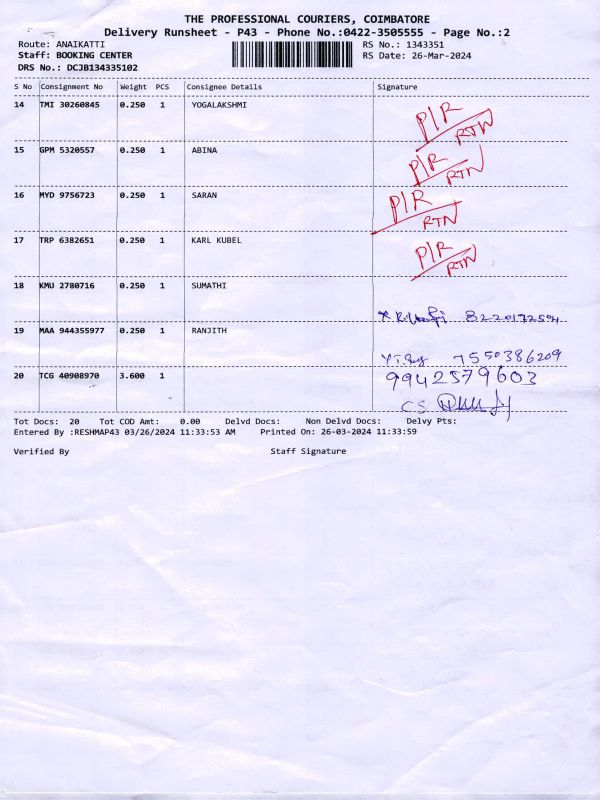 THE PROFESSIONAL COURIERS, COIMBATORE
Delivery Runsheet - P43 - Phone No.:0422-3505555 - Page No.:2
Route: ANAIKATTI RS No.: 1343351
Staff: BOOKING CENTER RS Date: 26-Mar-2024
DRS No.: DCJB134335102
S No Consignment No Weight PCS Consignee Details Signature
14 TMI 30260845 0.250 1 YOGALAKSHMI P/R RTN
15 GPM 5320557 0.250 1 ABINA P/R RTN
16 MYD 9756723 0.250 1 SARAN P/R RTN
17 TRP 6382651 0.250 1 KARL KUBEL P/R RTN
18 KMU 2780716 0.250 1 SUMATHI
8220172504
19 MAA 944355977 0.250 1 RANJITH
7550386209
20 TCG 40908970 3.600 1 9942579603
CS
Tot Docs: 20 Tot COD Amt: 0.00 Delvd Docs: Non Delvd Docs: Delvy Pts:
Entered By :RESHMAP43 03/26/2024 11:33:53 AM Printed On: 26-03-2024 11:33:59
Verified By Staff Signature